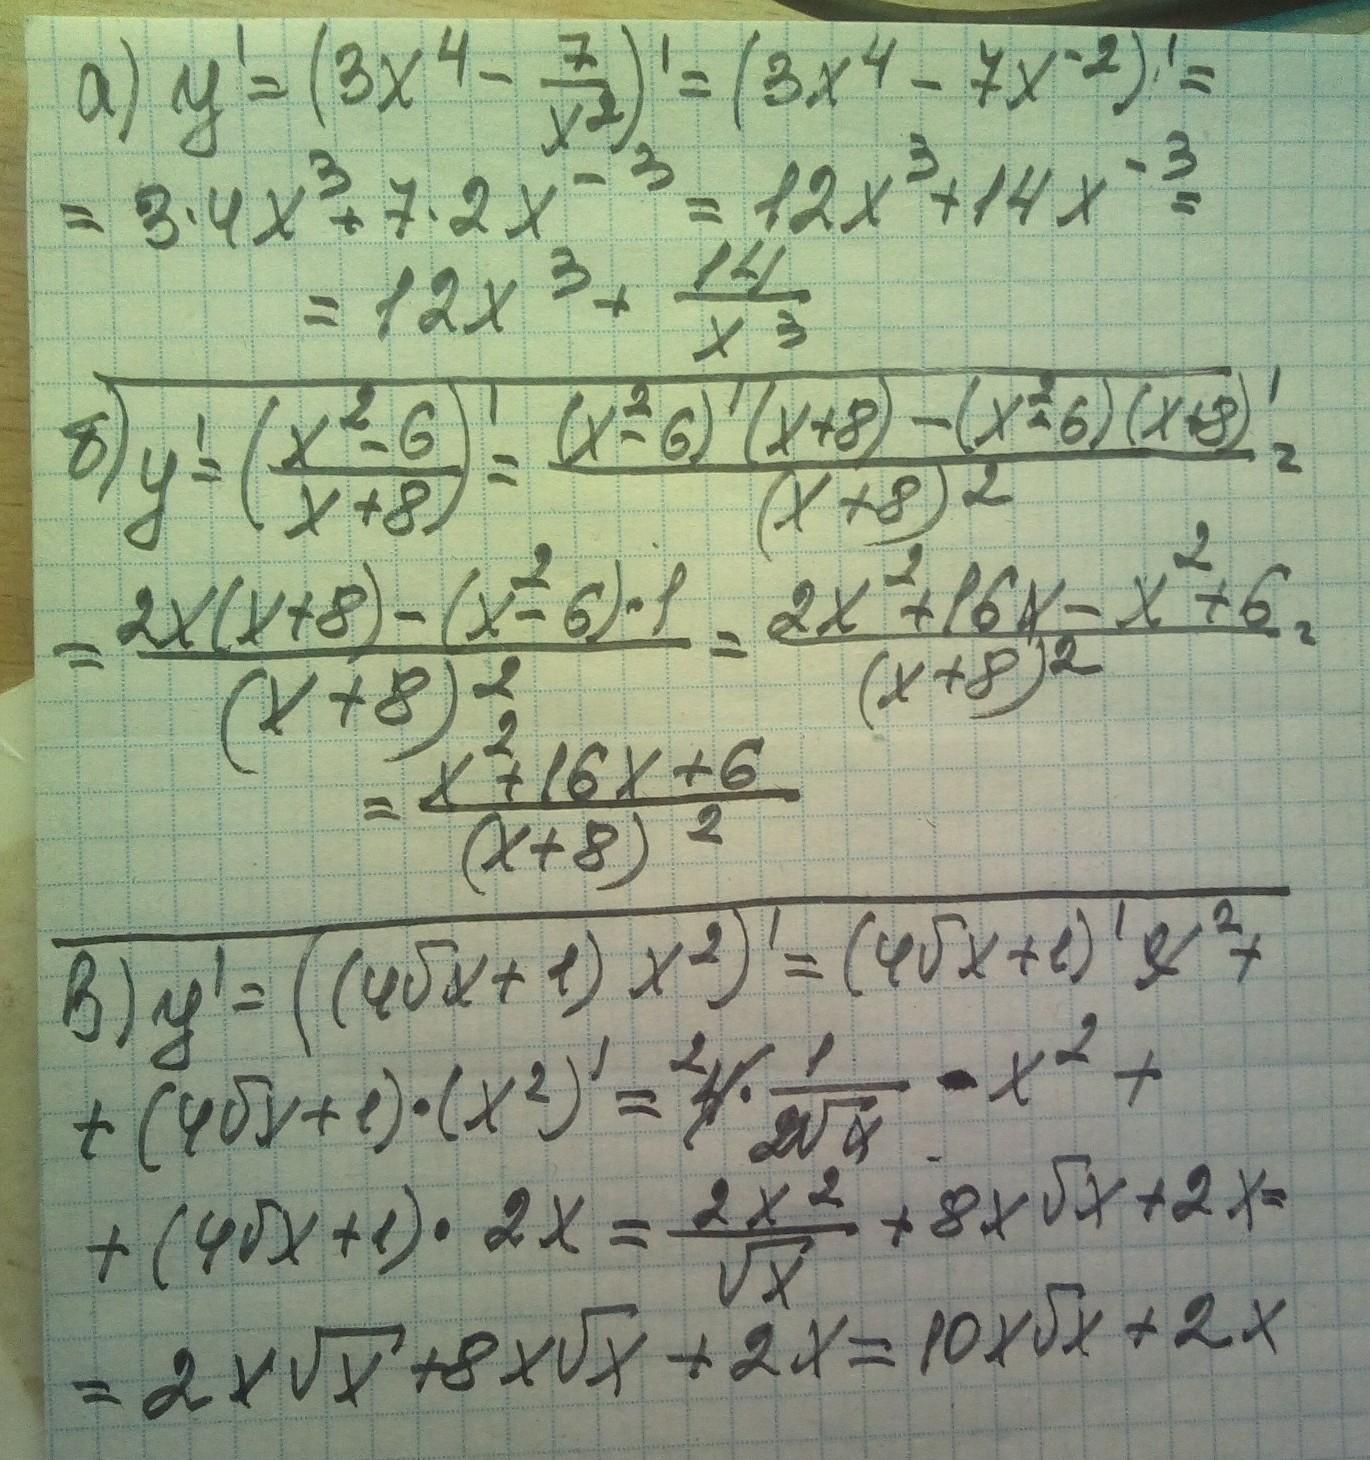 а) y' = (3x⁴ - 7/x²)' = (3x⁴ - 7x⁻²)' =
= 3·4x³ + 7·2x⁻³ = 12x³ + 14x⁻³ =
= 12x³ + 14/x³
б) y' = ((x²-6)/(x+8))' = ((x²-6)'(x+8) - (x²-6)(x+8)')/(x+8)² =
= (2x(x+8) - (x²-6)·1)/(x+8)² = (2x²+16x-x²+6)/(x+8)² =
= (x²+16x+6)/(x+8)²
в) y' = ((4√x+1) x²)' = (4√x+1)' x² +
+ (4√x+1)·(x²)' = ²4· 1/(2√x) · x² +
+ (4√x+1)· 2x = 2x²/√x + 8x√x + 2x =
= 2x√x + 8x√x + 2x = 10x√x + 2x